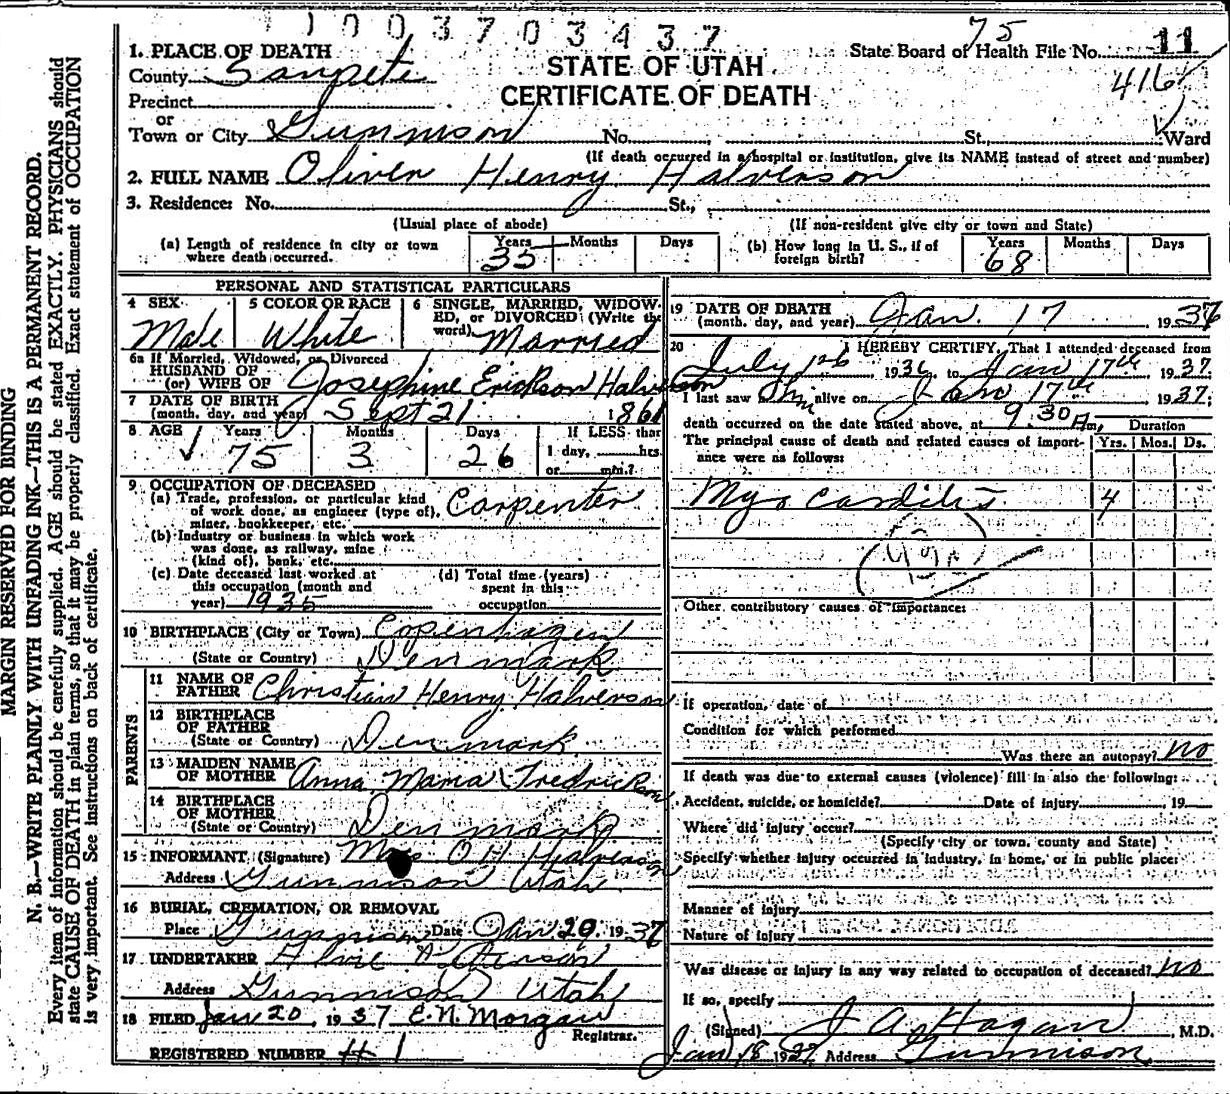 1003703437
75
State Board of Health File No. 11
416
1. PLACE OF DEATH
County Sanpete
STATE OF UTAH
CERTIFICATE OF DEATH
Precinct
or
Town or City Gunnison No. St. Ward
(If death occurred in a hospital or institution, give its NAME instead of street and number)
2. FULL NAME Oliver Henry Halverson
3. Residence: No. St.,
(Usual place of abode) (If non-resident give city or town and State)
(a) Length of residence in city or town where death occurred. Years 35 Months Days
(b) How long in U. S., if of foreign birth? Years 68 Months Days
PERSONAL AND STATISTICAL PARTICULARS
4 SEX Male
5 COLOR OR RACE White
6 SINGLE, MARRIED, WIDOWED, or DIVORCED (Write the word) Married
6a If Married, Widowed, or Divorced
HUSBAND OF
(or) WIFE OF Josephine Erickson Halverson
7 DATE OF BIRTH
(month, day, and year) Sept 21 1861
8 AGE Years 75 Months 3 Days 26
If LESS than
1 day, hrs.
or min.?
9 OCCUPATION OF DECEASED
(a) Trade, profession, or particular kind
of work done, as engineer (type of), Carpenter
miner, bookkeeper, etc.
(b) Industry or business in which work
was done, as railway, mine
(kind of), bank, etc.
(c) Date deceased last worked at
this occupation (month and
year) 1935
(d) Total time (years)
spent in this
occupation
10 BIRTHPLACE (City or Town) Copenhagen
(State or Country) Denmark
PARENTS
11 NAME OF
FATHER Christian Henry Halverson
12 BIRTHPLACE
OF FATHER
(State or Country) Denmark
13 MAIDEN NAME
OF MOTHER Anna Maria Fredrickson
14 BIRTHPLACE
OF MOTHER
(State or Country) Denmark
15 INFORMANT (Signature) Mrs O H Halverson
Address Gunnison Utah
16 BURIAL, CREMATION, OR REMOVAL
Place Gunnison Date Jan 20, 1937
17 UNDERTAKER
Address Gunnison Utah
18 FILED Jan 20, 1937 E. N. Morgan
Registrar.
REGISTERED NUMBER # 1
19 DATE OF DEATH
(month, day, and year) Jan. 17 1937
20 I HEREBY CERTIFY, That I attended deceased from
July 1936, to Jan 17th 1937.
I last saw him alive on Jan 17th 1937;
death occurred on the date stated above, at 9.30 A m,
Duration
The principal cause of death and related causes of importance were as follows: Yrs. Mos. Ds.
Myocarditis 4
Other contributory causes of importance:
If operation, date of
Condition for which performed
Was there an autopsy? no
If death was due to external causes (violence) fill in also the following:
Accident, suicide, or homicide? Date of injury , 19
Where did injury occur?
(Specify city or town, county and State)
Specify whether injury occurred in industry, in home, or in public place:
Manner of injury
Nature of injury
Was disease or injury in any way related to occupation of deceased? no
If so, specify
(Signed) J A Hagan, M.D.
Jan 18 1937 Address Gunnison
MARGIN RESERVED FOR BINDING
N. B.—WRITE PLAINLY WITH UNFADING INK—THIS IS A PERMANENT RECORD.
Every item of information should be carefully supplied. AGE should be stated EXACTLY. PHYSICIANS should
state CAUSE OF DEATH in plain terms, so that it may be properly classified. Exact statement of OCCUPATION
is very important. See instructions on back of certificate.